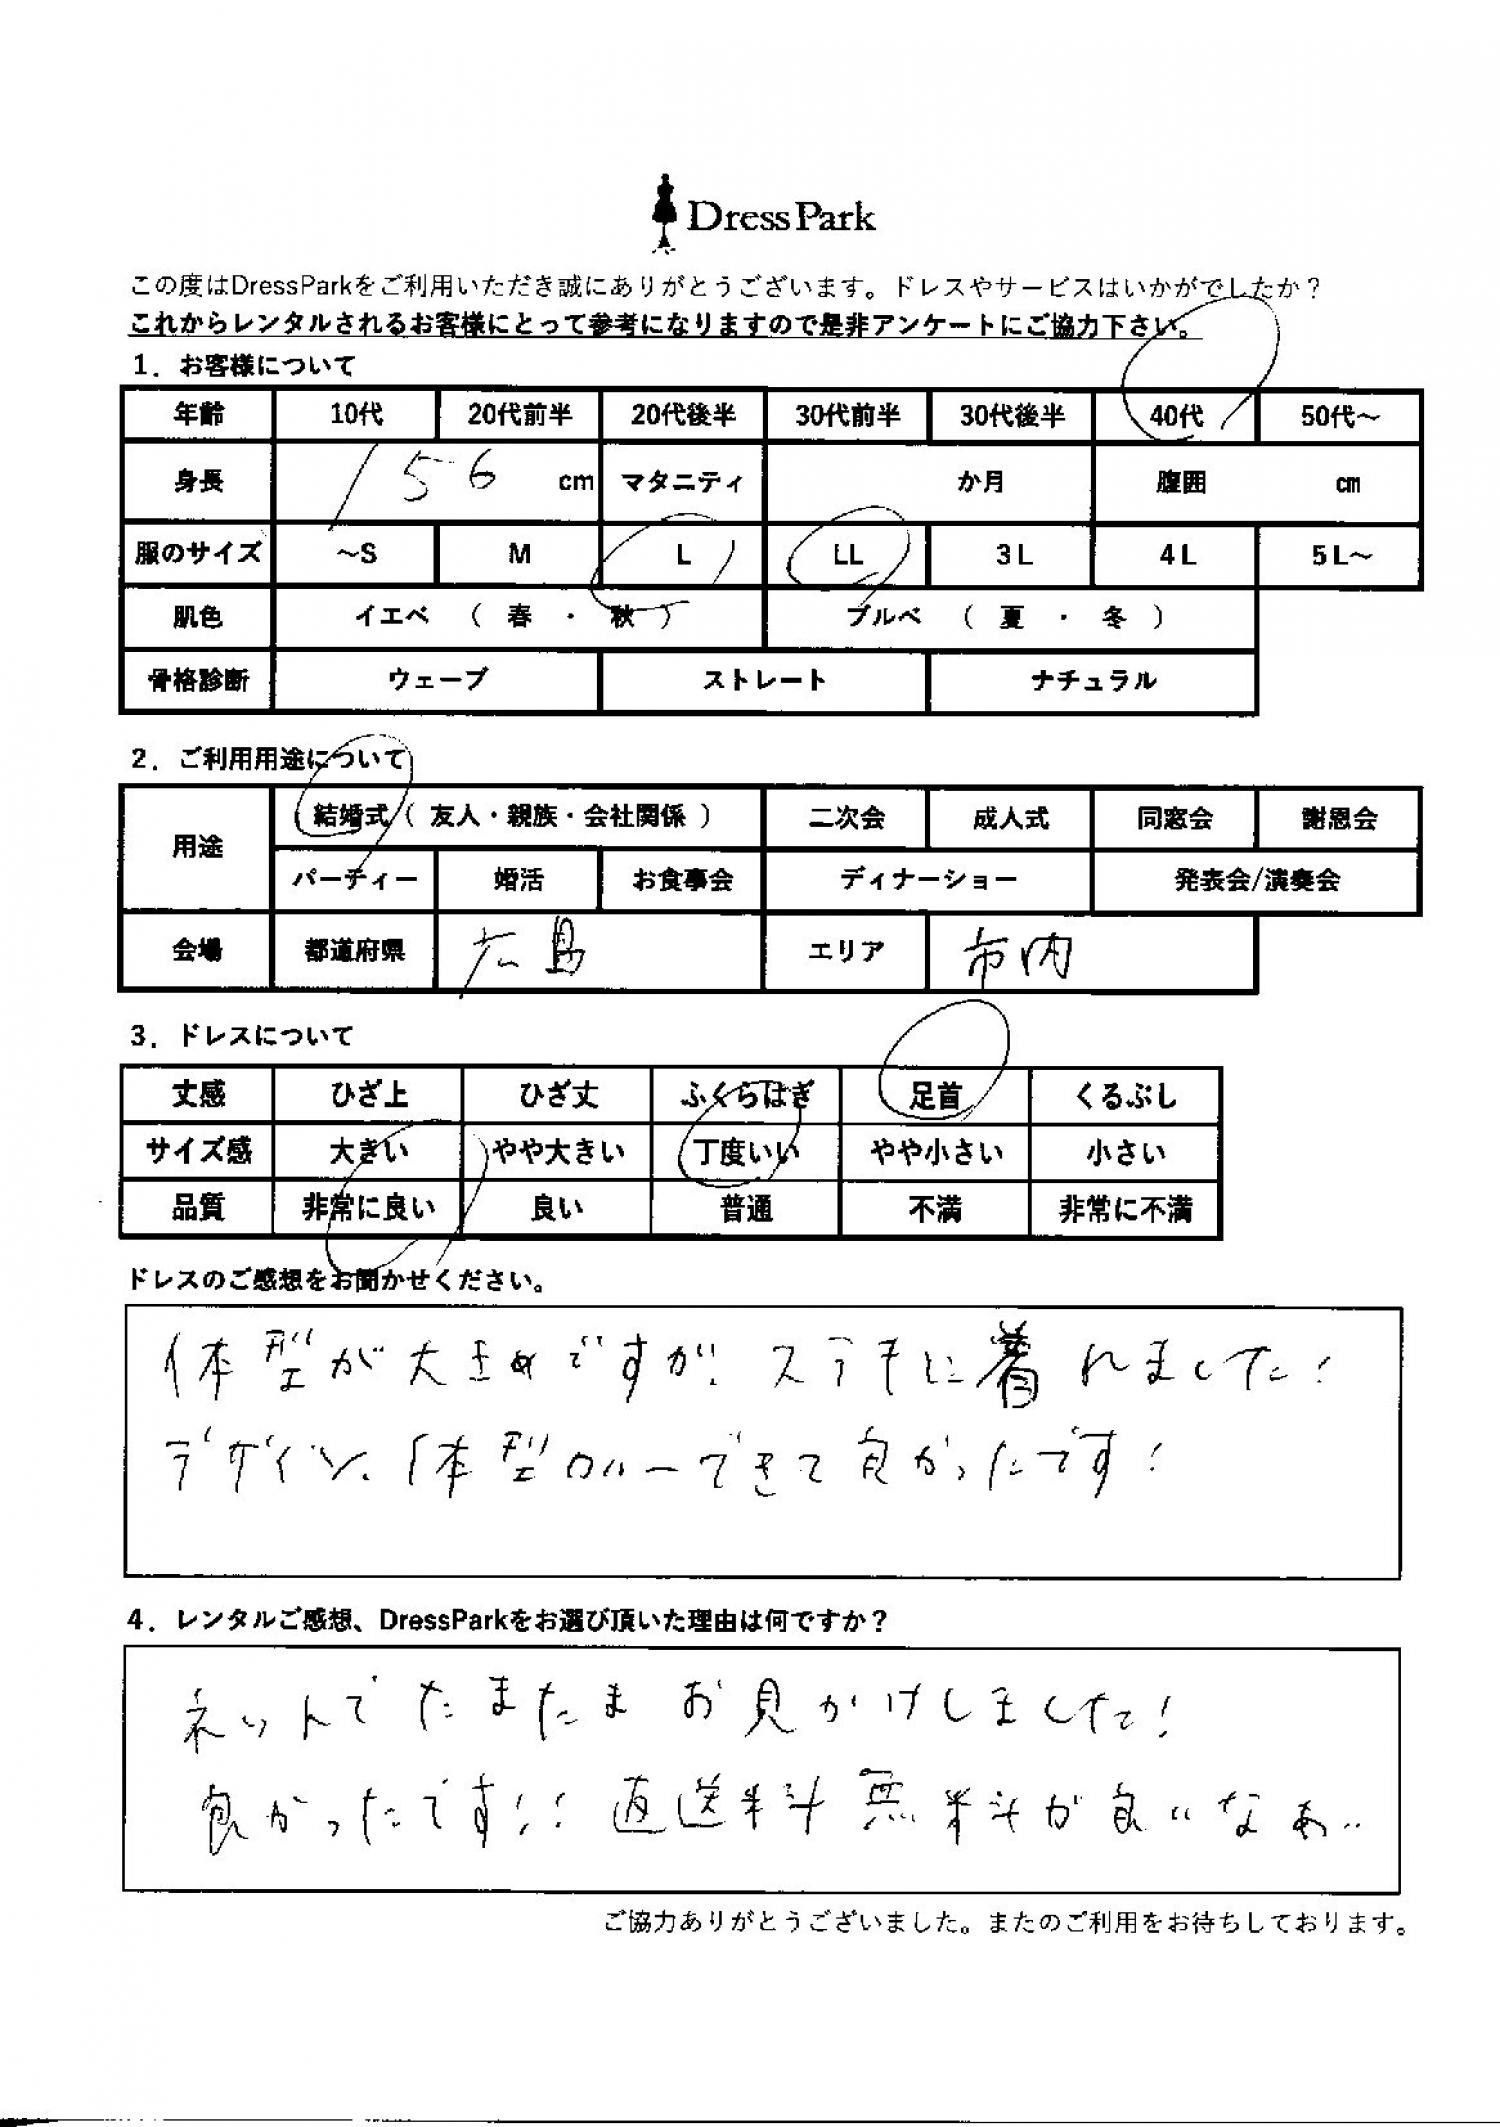 Dress Park
この度はDressParkをご利用いただき誠にありがとうございます。ドレスやサービスはいかがでしたか？
これからレンタルされるお客様にとって参考になりますので是非アンケートにご協力下さい。
1．お客様について
年齢 10代 20代前半 20代後半 30代前半 30代後半 40代 50代～
身長 156 cm マタニティ か月 腹囲 cm
服のサイズ ～S M L LL 3L 4L 5L～
肌色 イエベ （ 春 ・ 秋 ） ブルベ （ 夏 ・ 冬 ）
骨格診断 ウェーブ ストレート ナチュラル
2．ご利用用途について
用途 結婚式（ 友人・親族・会社関係 ） 二次会 成人式 同窓会 謝恩会
パーティー 婚活 お食事会 ディナーショー 発表会/演奏会
会場 都道府県 広島 エリア 市内
3．ドレスについて
丈感 ひざ上 ひざ丈 ふくらはぎ 足首 くるぶし
サイズ感 大きい やや大きい 丁度いい やや小さい 小さい
品質 非常に良い 良い 普通 不満 非常に不満
ドレスのご感想をお聞かせください。
体型が大きめですが、ステキに着れました！
デザイン、体型カバーできて良かったです！
4．レンタルご感想、DressParkをお選び頂いた理由は何ですか？
ネットでたまたまお見かけしました！
良かったです！！返送料無料が良いなぁ..
ご協力ありがとうございました。またのご利用をお待ちしております。